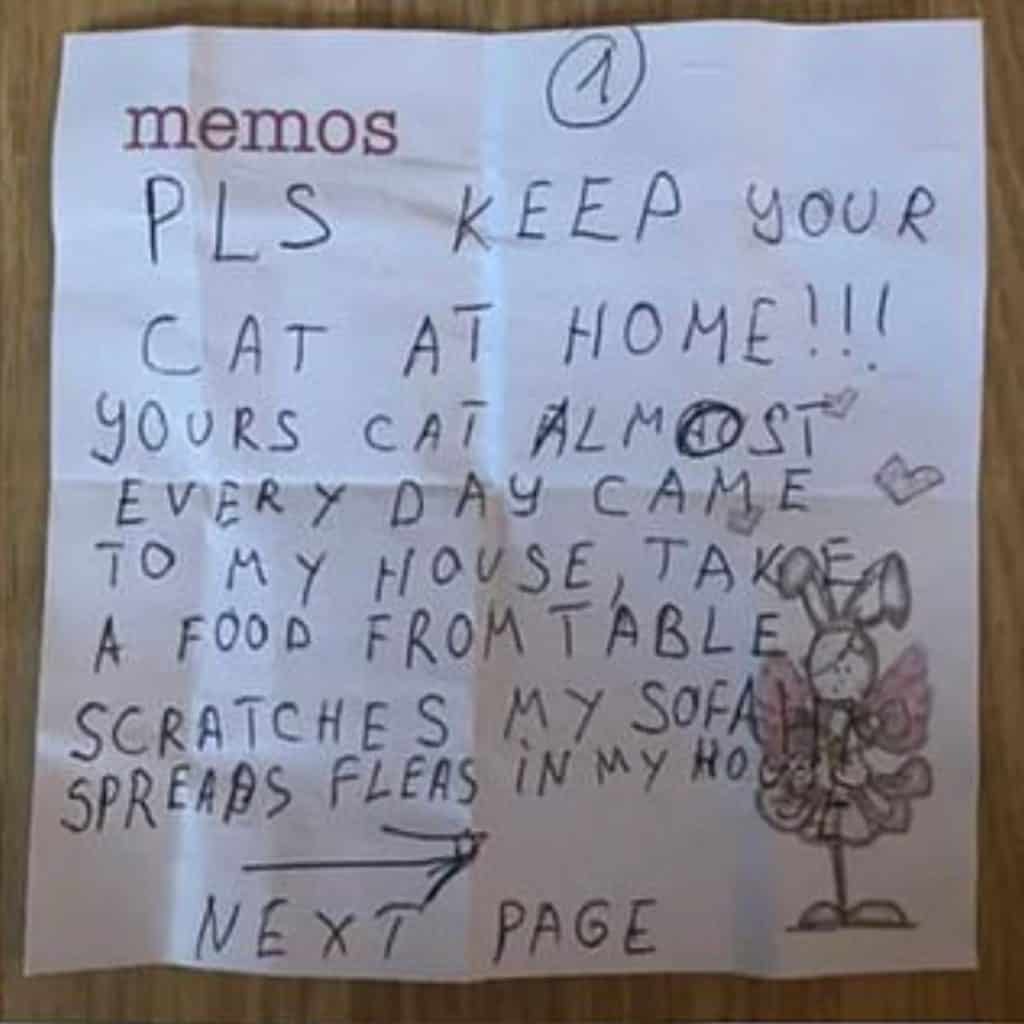 1
memos
PLS KEEP YOUR
CAT AT HOME!!!
YOURS CAT ALMOST
EVERY DAY CAME
TO MY HOUSE, TAKE
A FOOD FROM TABLE
SCRATCHES MY SOFA
SPREADS FLEAS IN MY HO
NEXT PAGE